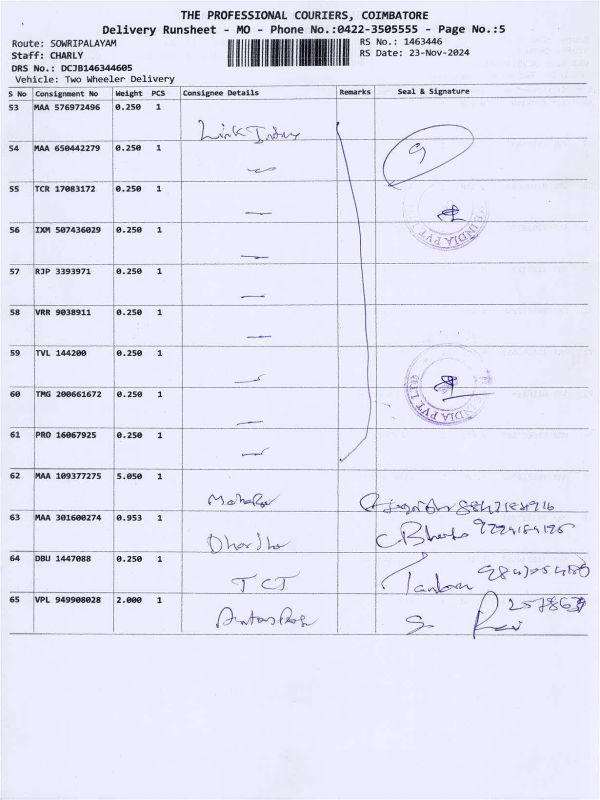 THE PROFESSIONAL COURIERS, COIMBATORE
Delivery Runsheet - MO - Phone No.:0422-3505555 - Page No.:5
Route: SOWRIPALAYAM
RS No.: 1463446
Staff: CHARLY
RS Date: 23-Nov-2024
DRS No.: DCJB146344605
Vehicle: Two Wheeler Delivery
S No Consignment No Weight PCS Consignee Details Remarks Seal & Signature
53 MAA 576972496 0.250 1
Link
54 MAA 650442279 0.250 1
9
55 TCR 17083172 0.250 1
INDIA PVT
56 IXM 507436029 0.250 1
57 RJP 3393971 0.250 1
58 VRR 9038911 0.250 1
59 TVL 144200 0.250 1
INDIA PVT
60 TMG 200661672 0.250 1
61 PRO 16067925 0.250 1
62 MAA 109377275 5.050 1
63 MAA 301600274 0.953 1
64 DBU 1447088 0.250 1
TCT
65 VPL 949908028 2.000 1